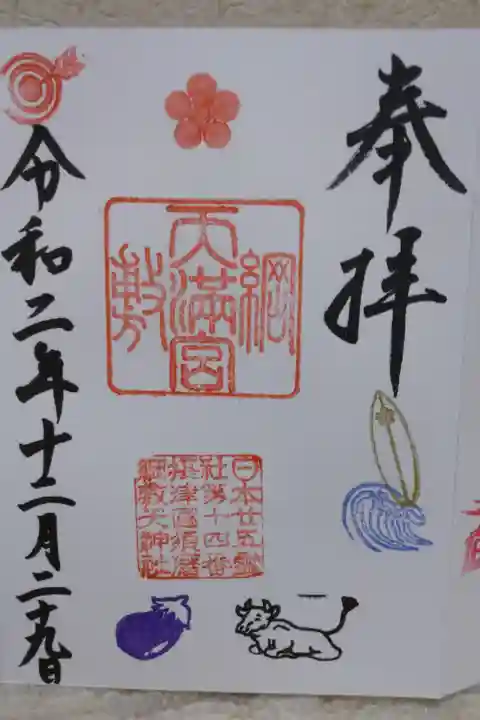 奉拝
綱
天満宮
敷
日本廿五霊
社第十四番
摂津国須磨
綱敷天神社
令和二年十二月二十九日